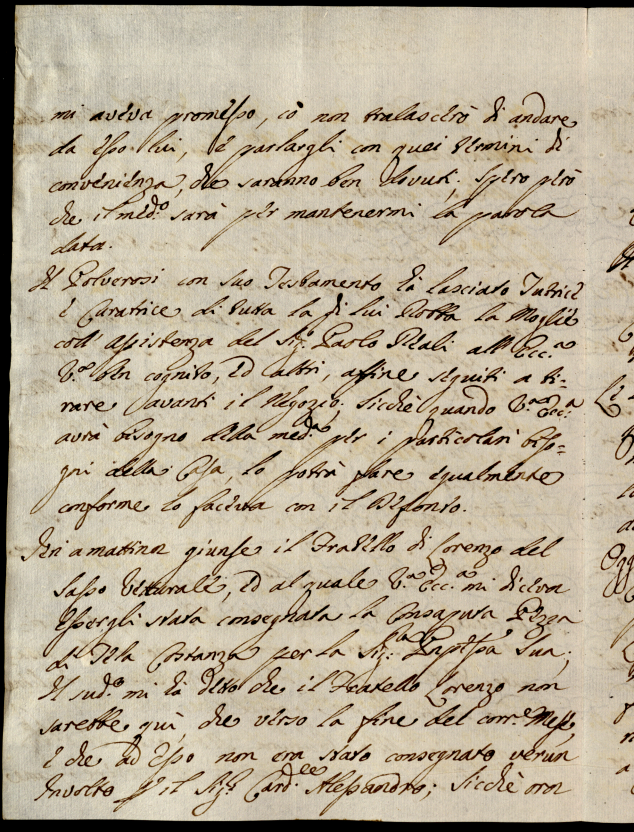 mi aveva promesso, io non tralascerò di andare
da esso lui, e parlargli con quei termini di
convenienza, che saranno ben dovuti; spero però
che il med.º sarà per mantenermi la parola
data.
Il Polverosi con suo Testamento hà lasciato Tutrice
e Curatrice di tutta la di lui Robba la Moglie
coll'assistenza del Sig.r Paolo all'Ecc.ª
V.ª ben cognito, ed altri, affine seguiti a ti-
rare avanti il Negozio; sicchè quando V.ª Ecc.ª
avrà bisogno della med.ª per i particolari biso-
gni della Casa, lo potrà fare egualmente
conforme lo faceva con il Defonto.
Ieri a mattina giunse il Fratello di Lorenzo del
Sasso Vetturale, ed al quale V.ª Ecc.ª mi diceva
essergli stata consegnata la consaputa Pezza
di Tela Costanza per la Sig.ra Sua;
Il sud.º mi hà detto che il Fratello Lorenzo non
sarebbe quì, che verso la fine del corr.e Mese,
e che ad esso non era stato consegnato verun
Involto p il Sig.r Card.le Alessandro; sicchè ora